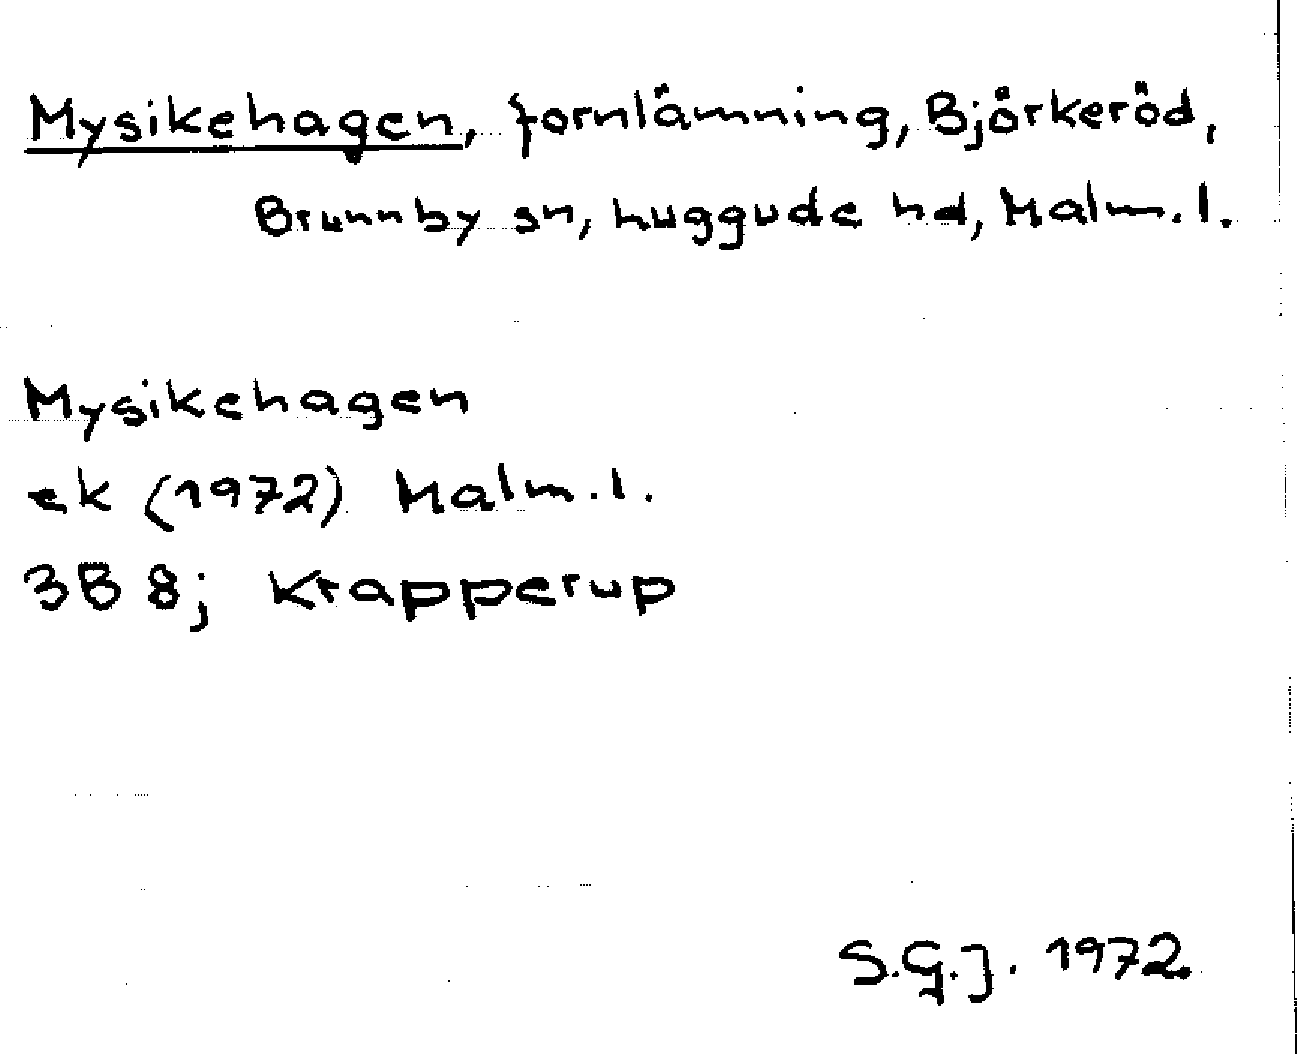 Mysikehagen, fornlämning, Björkeröd,
Brunnby sn, Luggude hd, Malm. l.
Mysikehagen
ek (1972) Malm. l.
3B 8j Krapperup
S.G.J. 1972